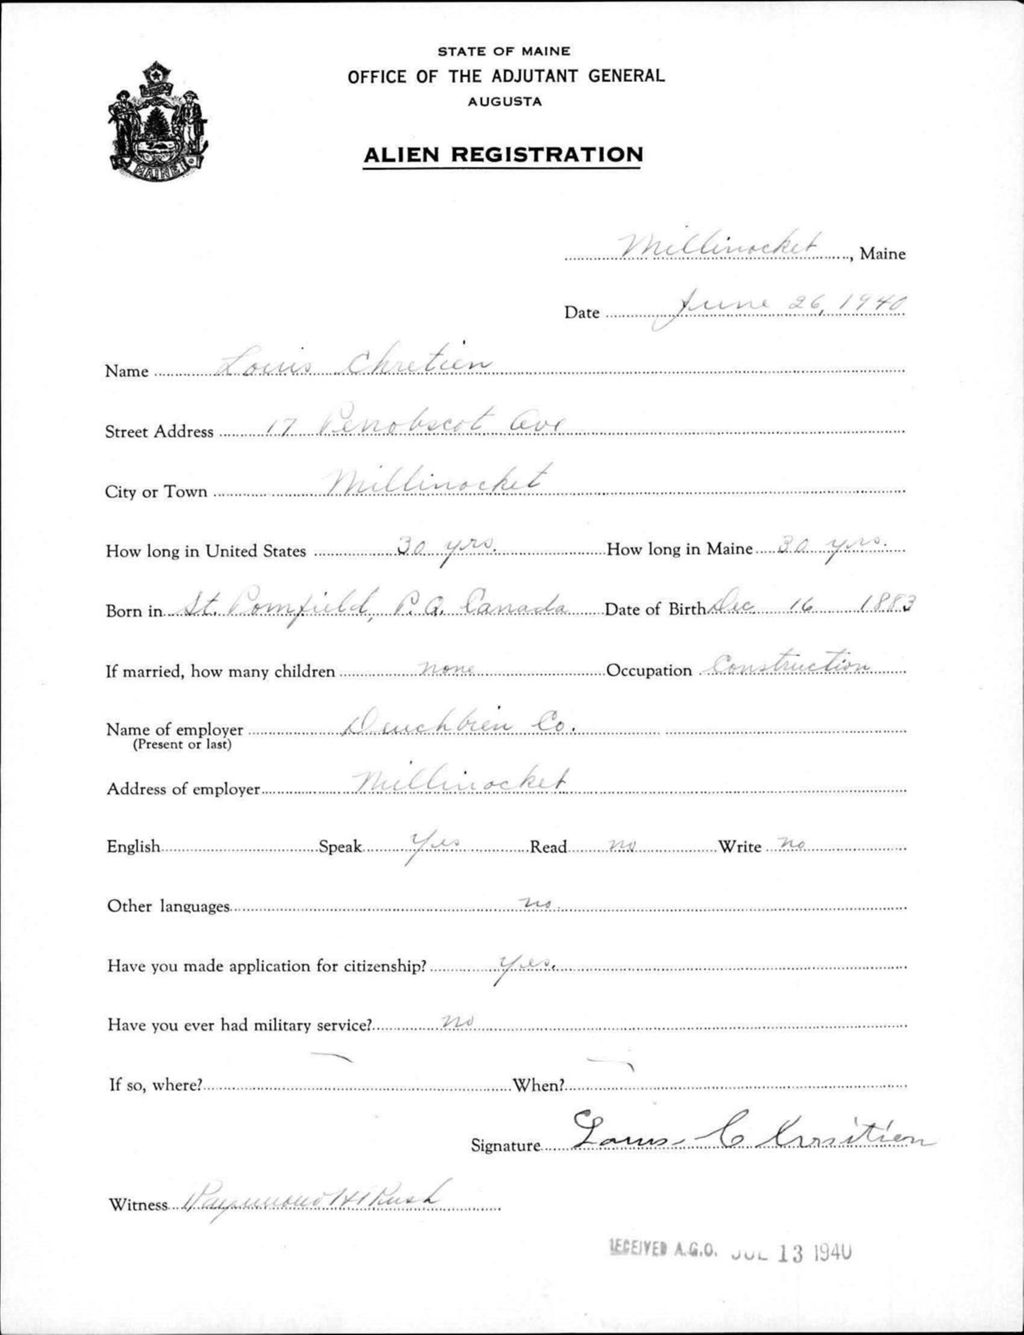 STATE OF MAINE
OFFICE OF THE ADJUTANT GENERAL
AUGUSTA
ALIEN REGISTRATION
MAINE
Millinocket, Maine
Date June 26, 1940
Name Louis Chretien
Street Address 17 Penobscot Ave
City or Town Millinocket
How long in United States 30 yrs. How long in Maine 30 yrs.
Born in St. Pomfield, P.Q. Canada Date of Birth Dec 16 1883
If married, how many children none Occupation Construction
Name of employer Co.
(Present or last)
Address of employer Millinocket
English Speak Yes Read no Write no
Other languages no
Have you made application for citizenship? Yes.
Have you ever had military service? no
If so, where? When?
Signature Louis
Witness Raymond H Rush
RECEIVED A.G.O. JUL 13 1940